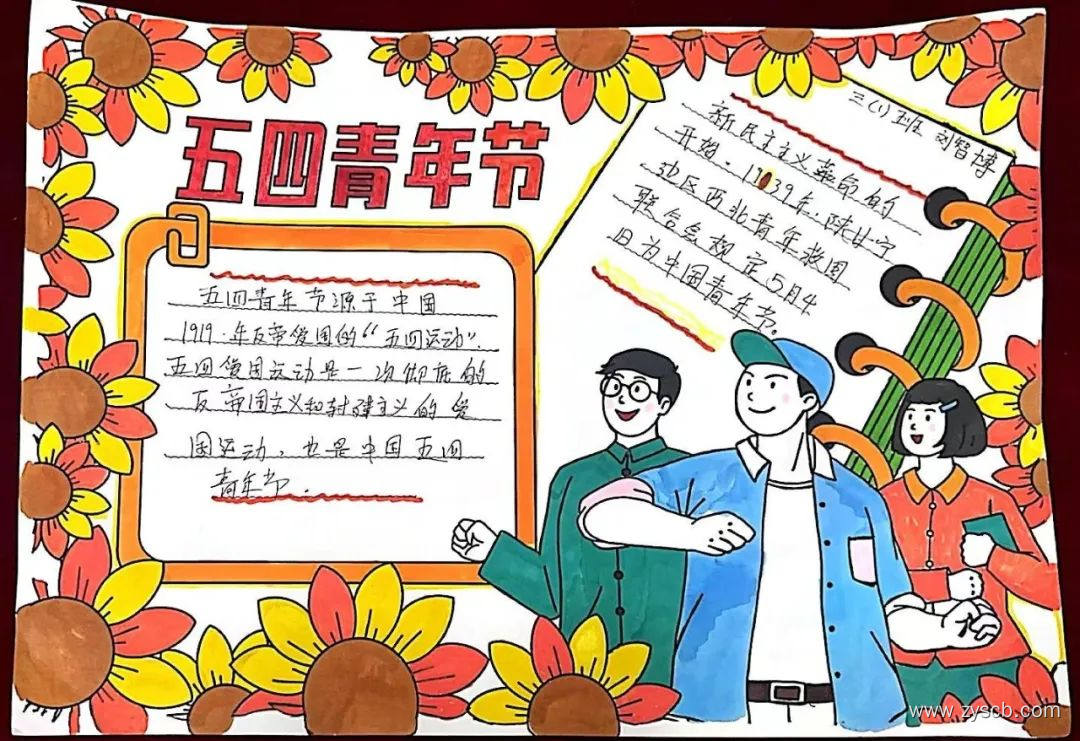 五四青年节
五四青年节源于中国
1919.年反帝爱国的“五四运动”.
五四爱国运动是一次彻底的
反帝国主义和封建主义的爱
国运动，也是中国五四
青年节.
三(1)班 刘智博
新民主主义革命的
开始.1939年,陕甘宁
边区西北青年救国
联合会规定5月4
日为中国青年节。
www.zyscb.com